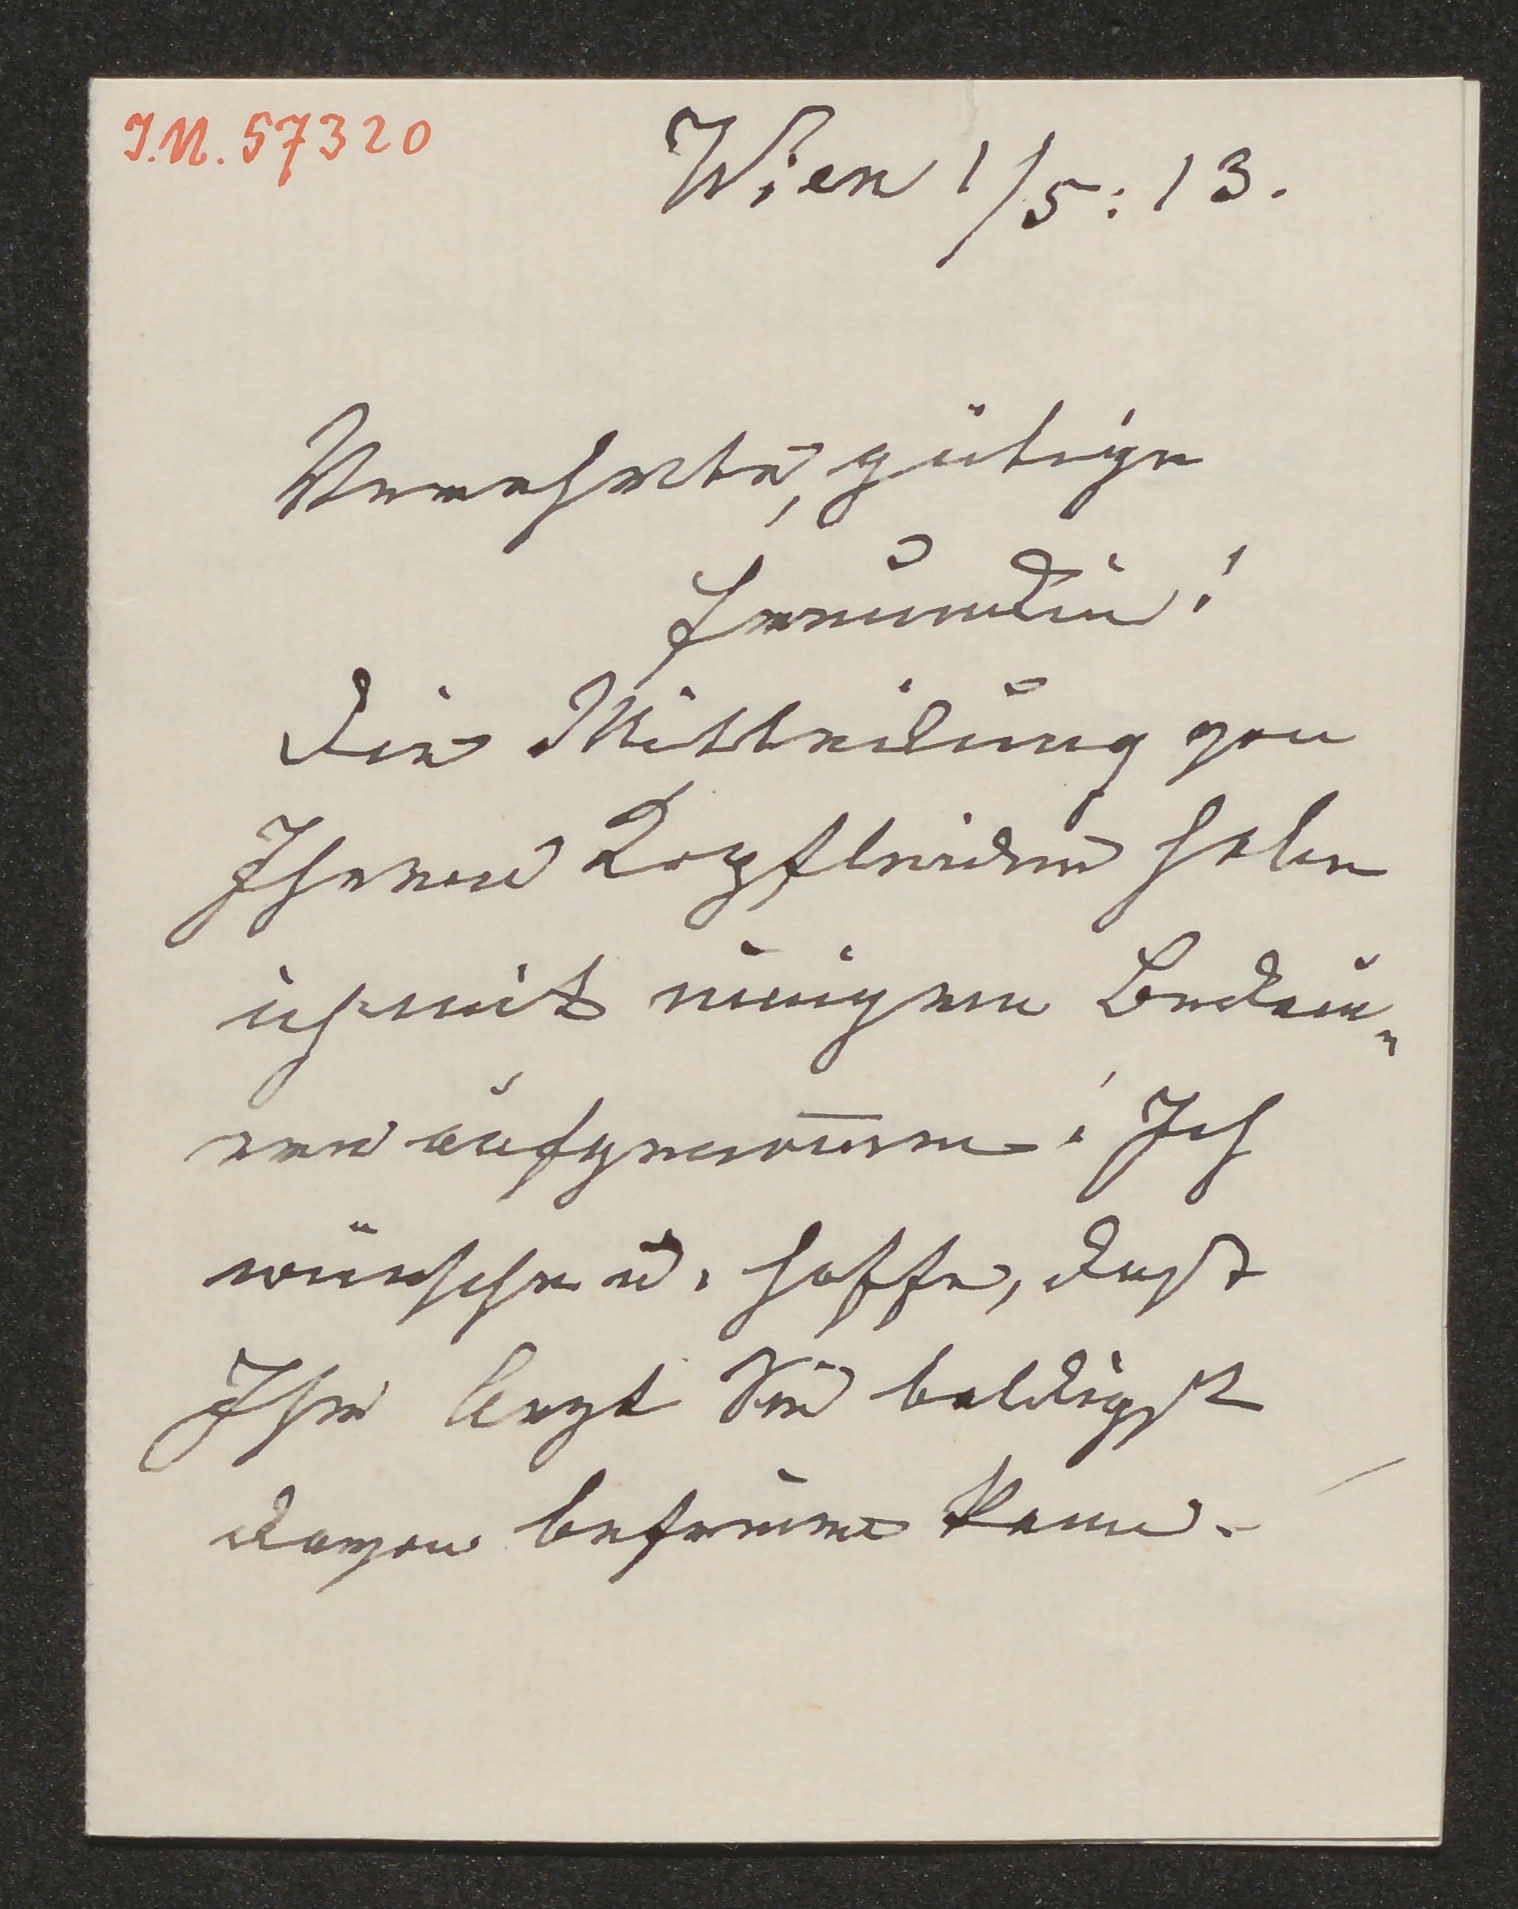 I.N. 57320
Wien 1/5. 13.
Verehrte, gütige
Freundin!
Die Mittheilung von
Ihrem Kopfleiden habe
ich mit innigem Bedau„
ern aufgenom̅en! Ich
wünsche u. hoffe, dass
Ihr Arzt Sie baldigst
davon befreien kann.–